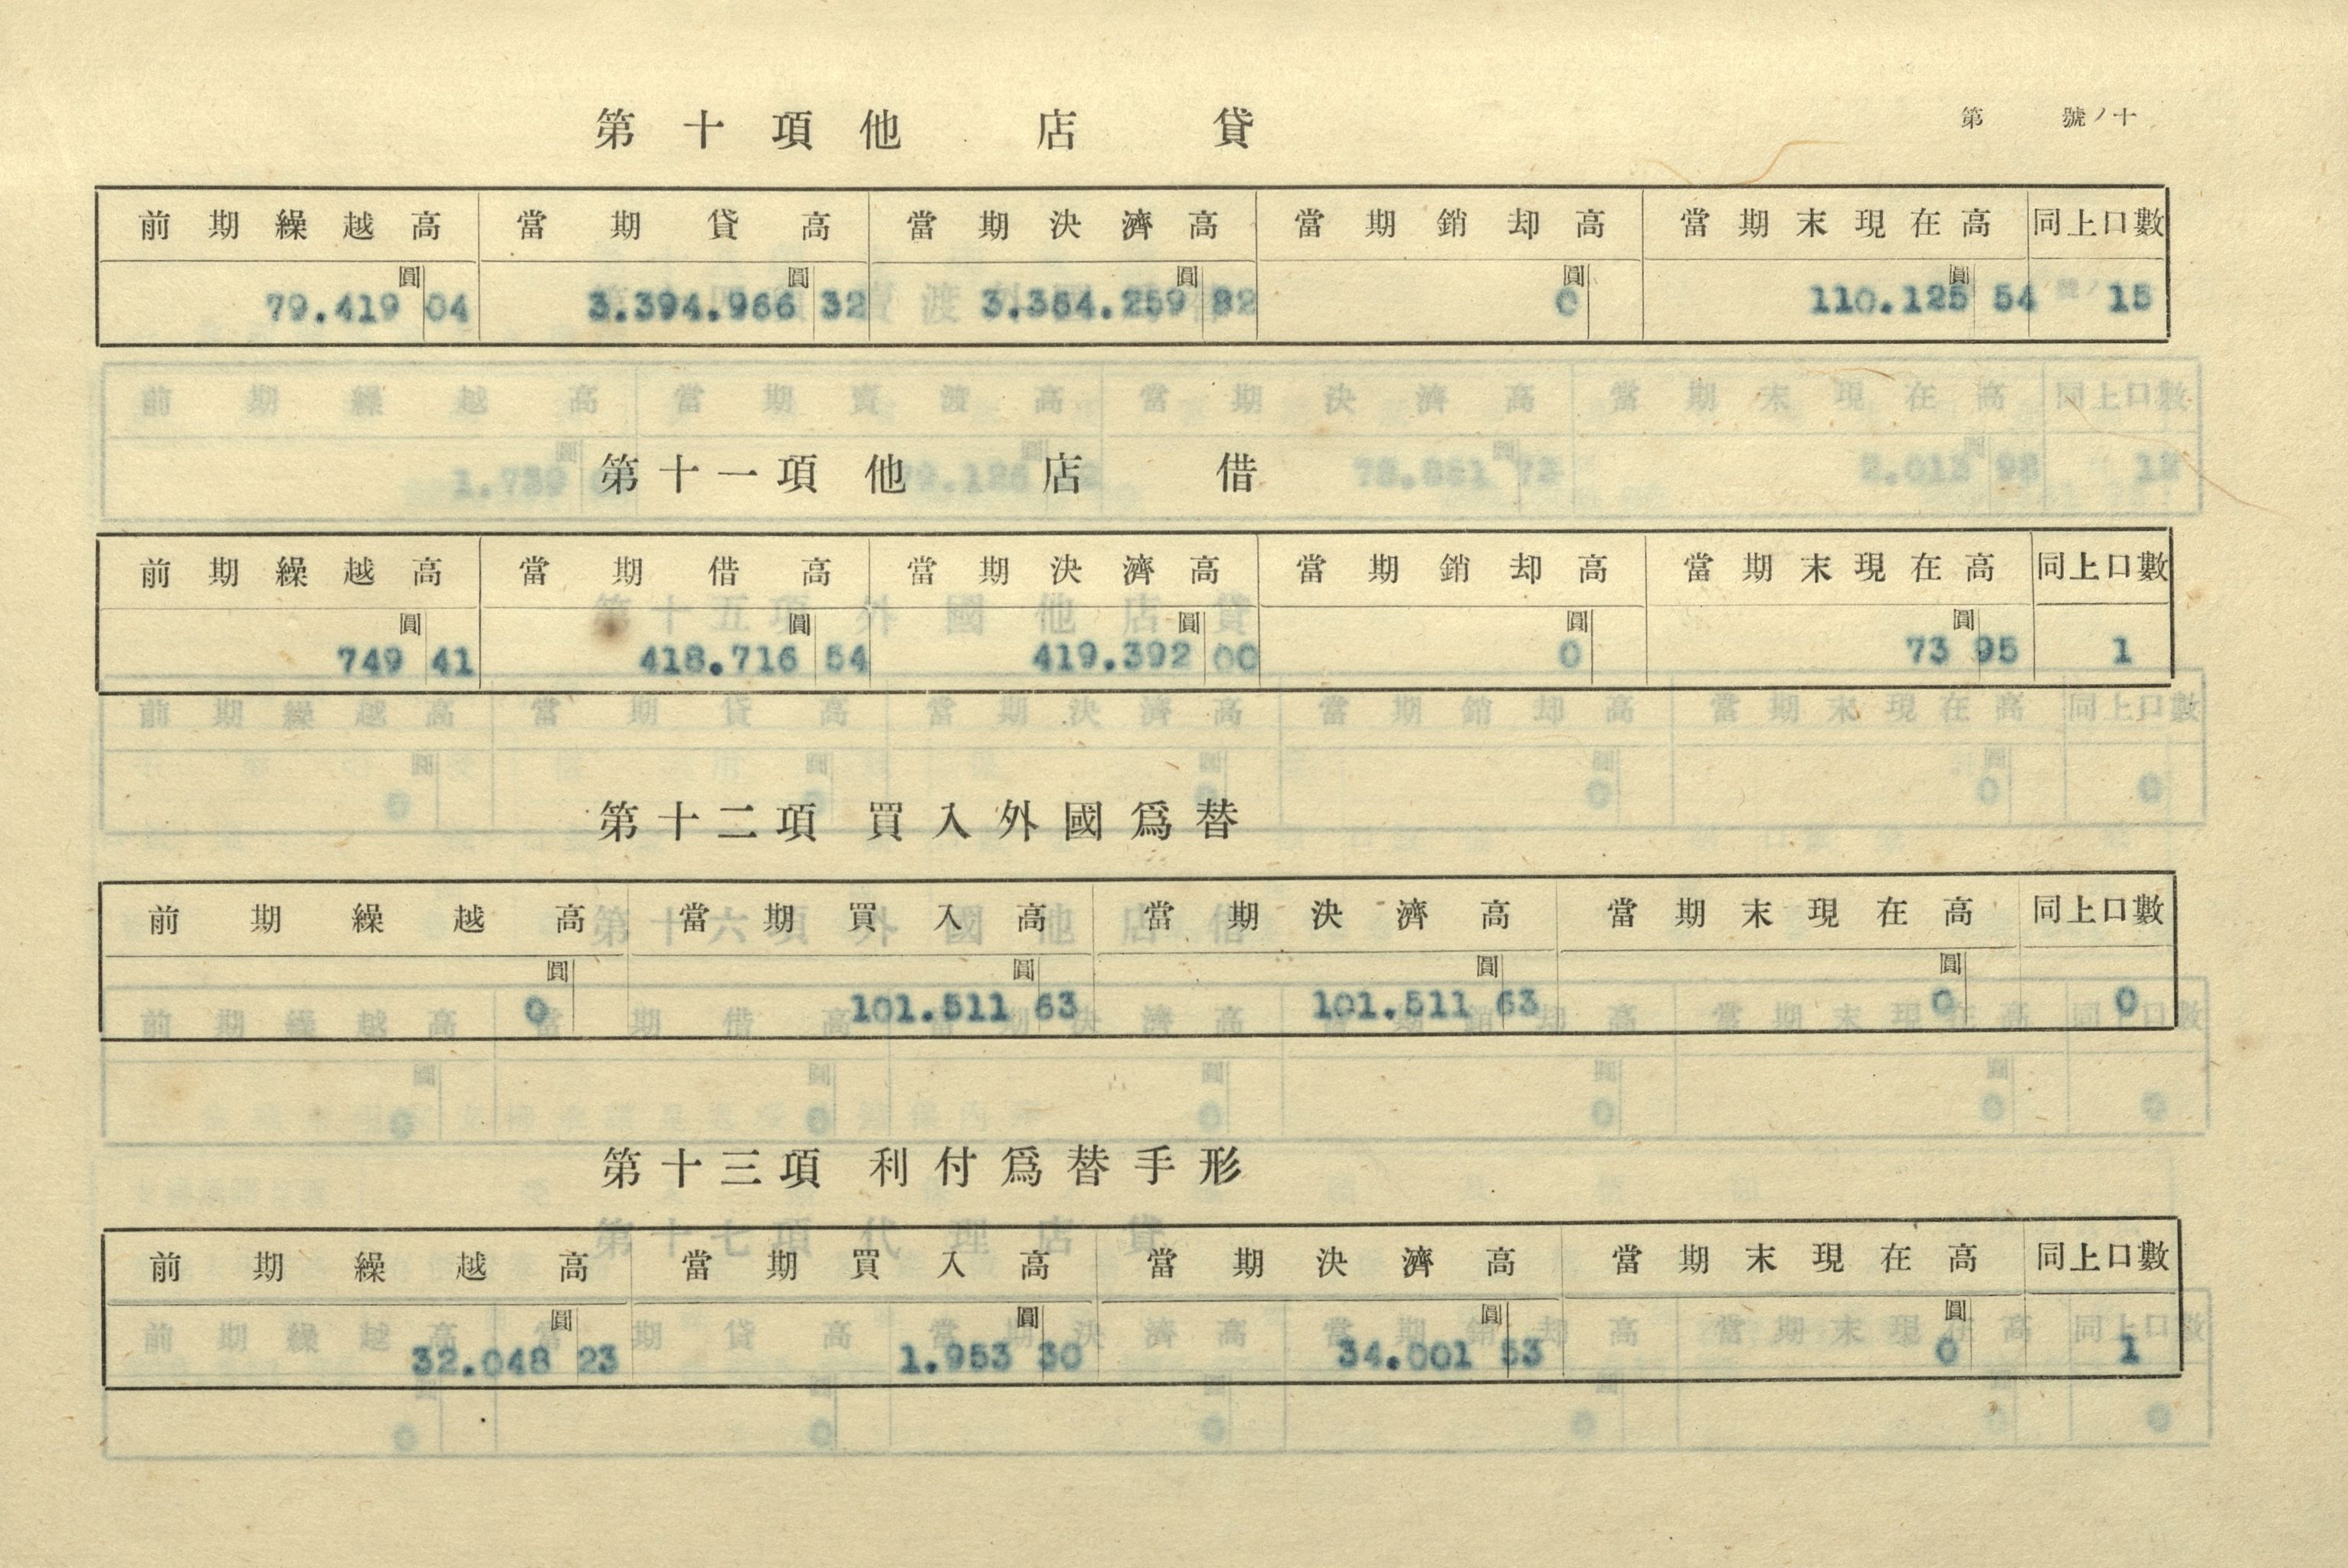 第十項他店貸
第 號ノ十
前期繰越高 當期貸高 當期決濟高 當期銷却高 當期末現在高 同上口數
圓 圓 圓 圓 圓
79.419 04 3.394.966 32 3.364.259 82 0 110.125 54 15
第十一項 他店借
前期繰越高 當期借高 當期決濟高 當期銷却高 當期末現在高 同上口數
圓 圓 圓 圓 圓
749 41 418.716 54 419.392 00 0 73 95 1
第十二項 買入外國爲替
前期繰越高 當期買入高 當期決濟高 當期末現在高 同上口數
圓 圓 圓 圓
0 101.511 63 101.511 63 0 0
第十三項 利付爲替手形
前期繰越高 當期買入高 當期決濟高 當期末現在高 同上口數
圓 圓 圓 圓
32.048 23 1.953 30 34.001 53 0 1